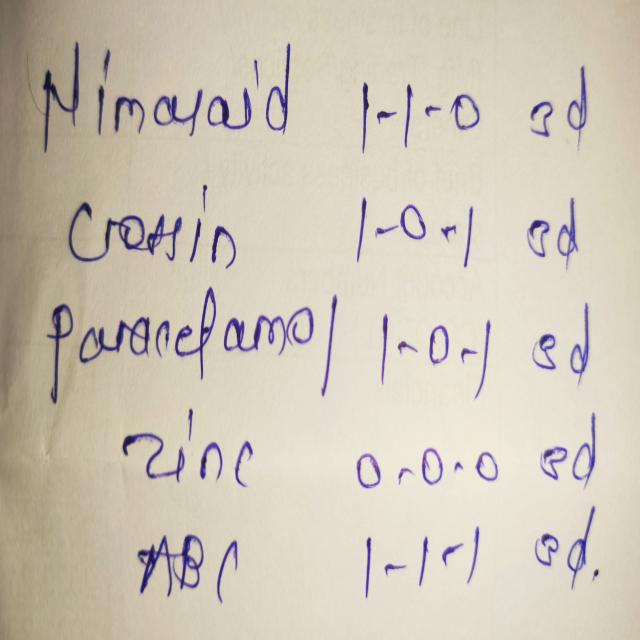 Nimoyaid 1-1-0 3d
Crossin 1-0-1 3d
Paracetamol 1-0-1 3d
Zinc 0-0-0 3d
ABC 1-1-1 3d.